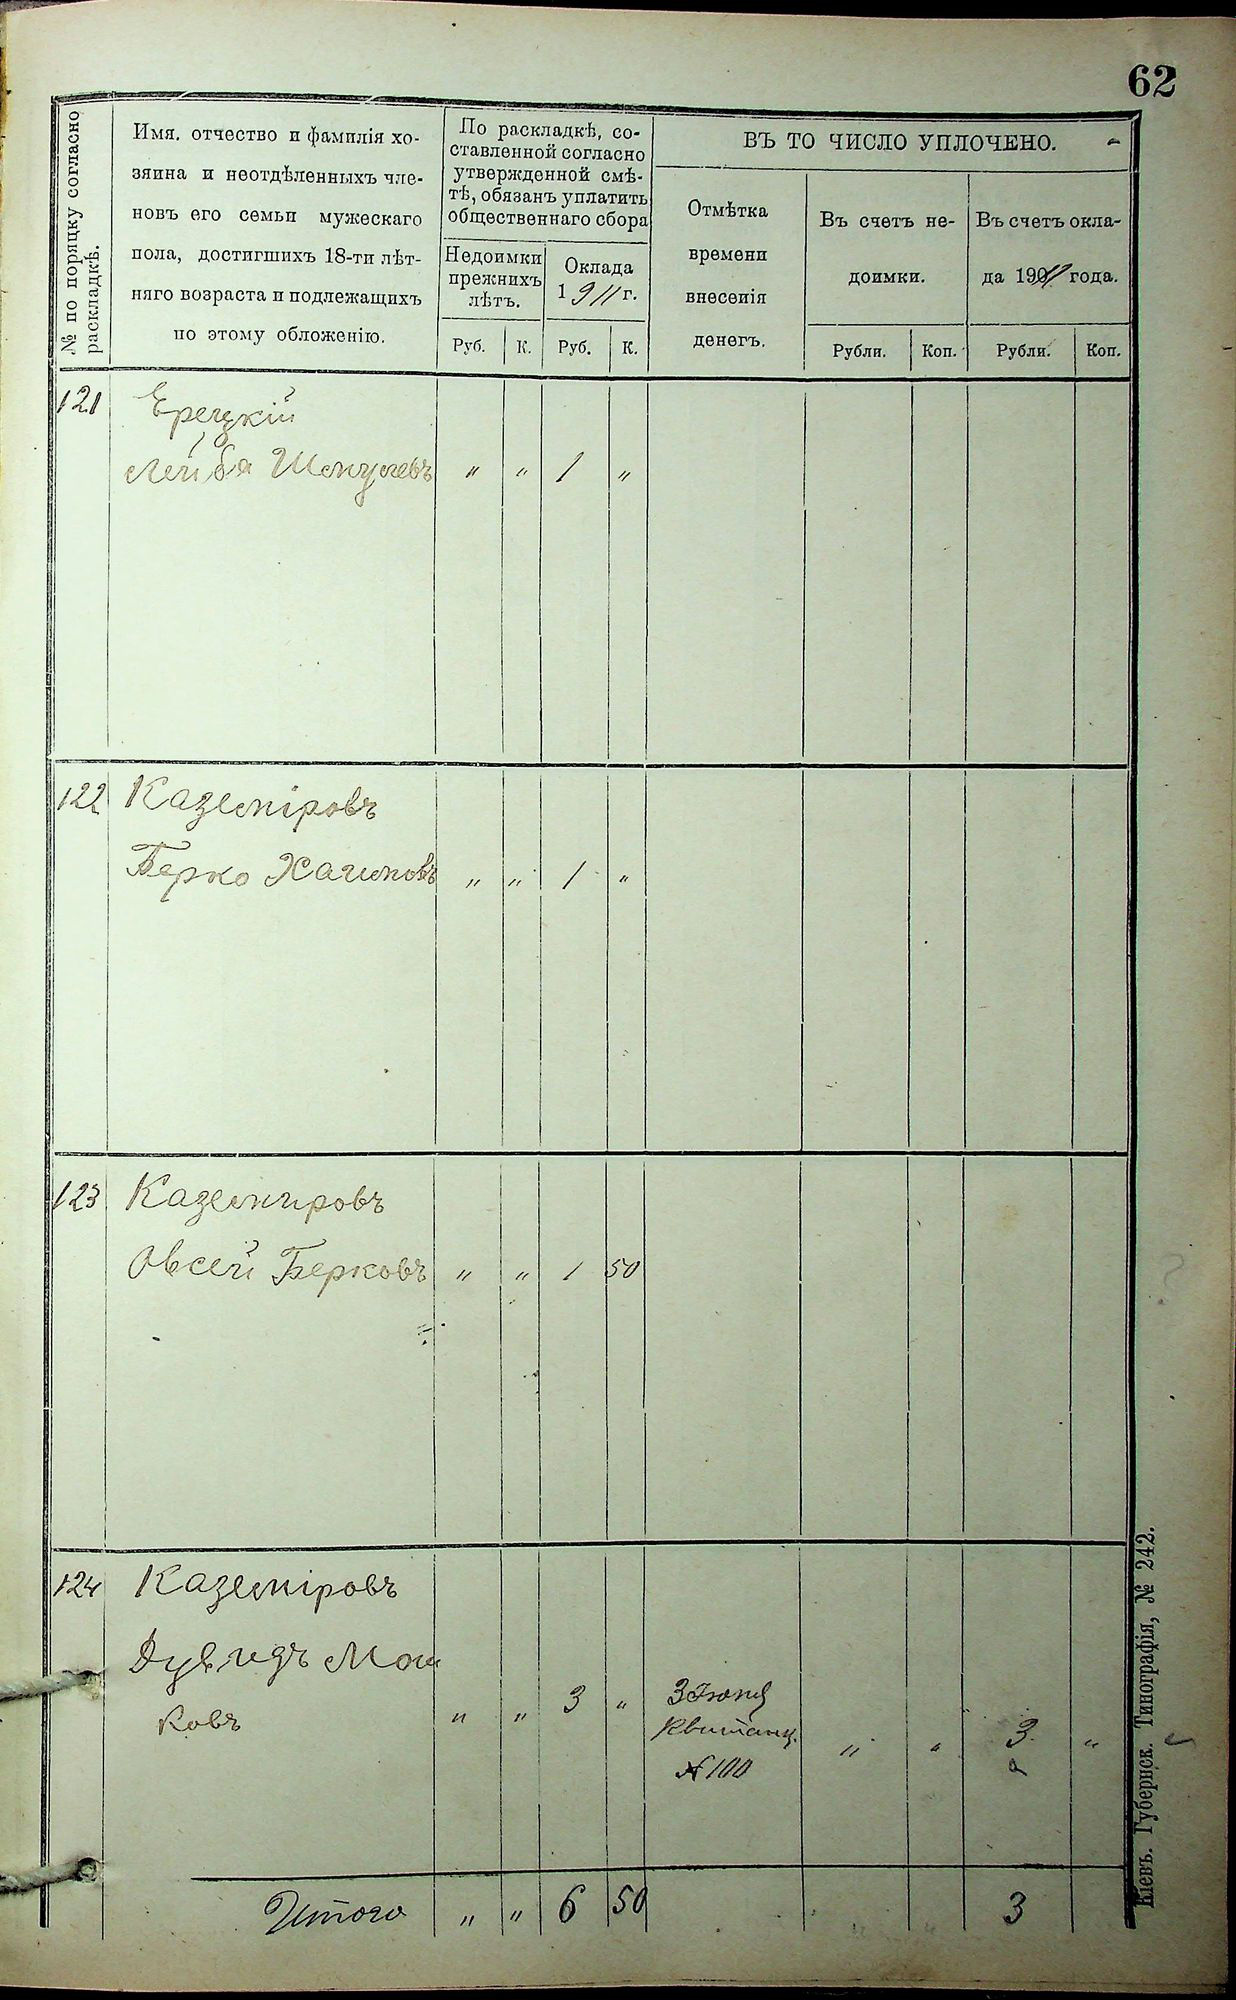 62
№ по порядку согласно
раскладкѣ.
Имя, отчество и фамилія хо-
зяина и неотдѣленныхъ чле-
новъ его семьи мужескаго
пола, достигшихъ 18-ти лѣт-
няго возраста и подлежащихъ
по этому обложенію.
По раскладкѣ, со-
ставленной согласно
утвержденной смѣ-
тѣ, обязанъ уплатить
общественнаго сбора
Недоимки
прежнихъ
лѣтъ.
Оклада
1911 г.
Руб. К. Руб. К.
ВЪ ТО ЧИСЛО УПЛОЧЕНО.
Отмѣтка
времени
внесенія
денегъ.
Въ счетъ не-
доимки.
Въ счетъ окла-
да 1911 года.
Рубли. Коп. Рубли. Коп.
121 Ерецкій
Лейба Шмулевъ " " 1 "
122 Каземіровъ
Берко Хаимовъ " " 1 "
123 Каземировъ
Овсей Берковъ " " 1 50
124 Каземіровъ
Дувидъ Мош
ковъ " " 3 "
Квитанц.
№ 100
" " 3 "
Итого " " 6 50 3
Кіевъ. Губернск. Типографія, № 242.